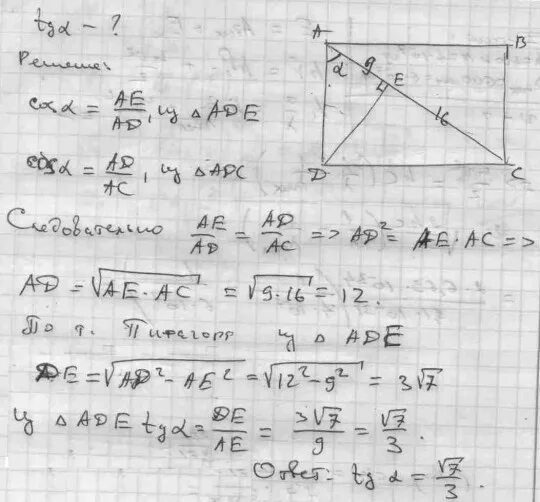 tgα - ?
Решение:
cosα = AE/AD, из △ ADE
cosα = AD/AC, из △ADC
A
B
α
9
E
16
D
C
Следовательно AE/AD = AD/AC => AD² = AE·AC =>
AD = √AE·AC = √9·16 = 12.
По т. Пифагора из △ ADE
DE = √AD² - AE² = √12² - 9² = 3√7
из △ ADE tgα = DE/AE = 3√7/9 = √7/3.
Ответ: tg α = √7/3.